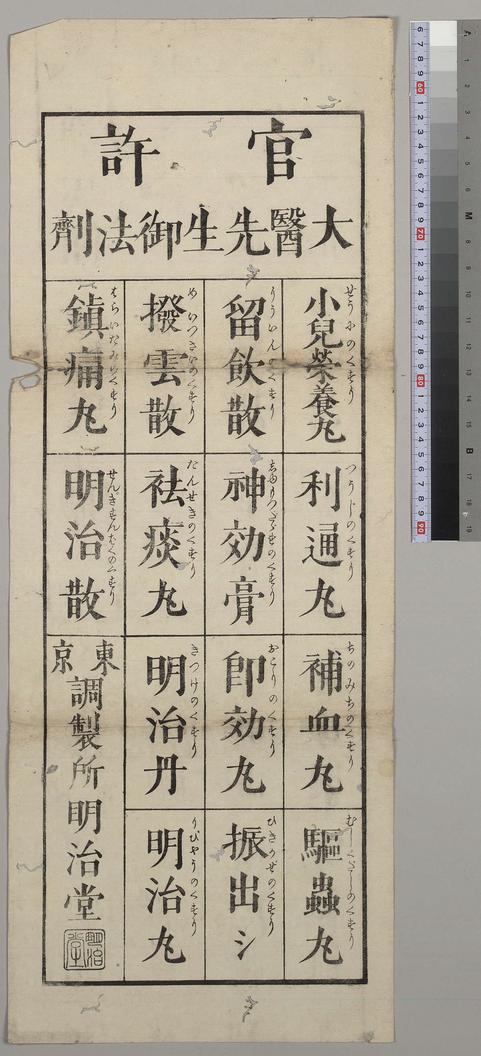 官許
大醫先生御法劑
小兒榮養丸
せうにのくすり
利通丸
つうじのくすり
補血丸
ちのみちのくすり
驅蟲丸
むしくだしのくすり
留飲散
りういんのくすり
神効膏
のくすり
即効丸
おこりのくすり
振出シ
ひきかぜのくすり
撥雲散
めいつさいのくすり
袪痰丸
たんせきのくすり
明治丹
きつけのくすり
明治丸
りびやうのくすり
鎮痛丸
はらいたみのくすり
明治散
せんきすんばくのくすり
東京
調製所明治堂
明治堂